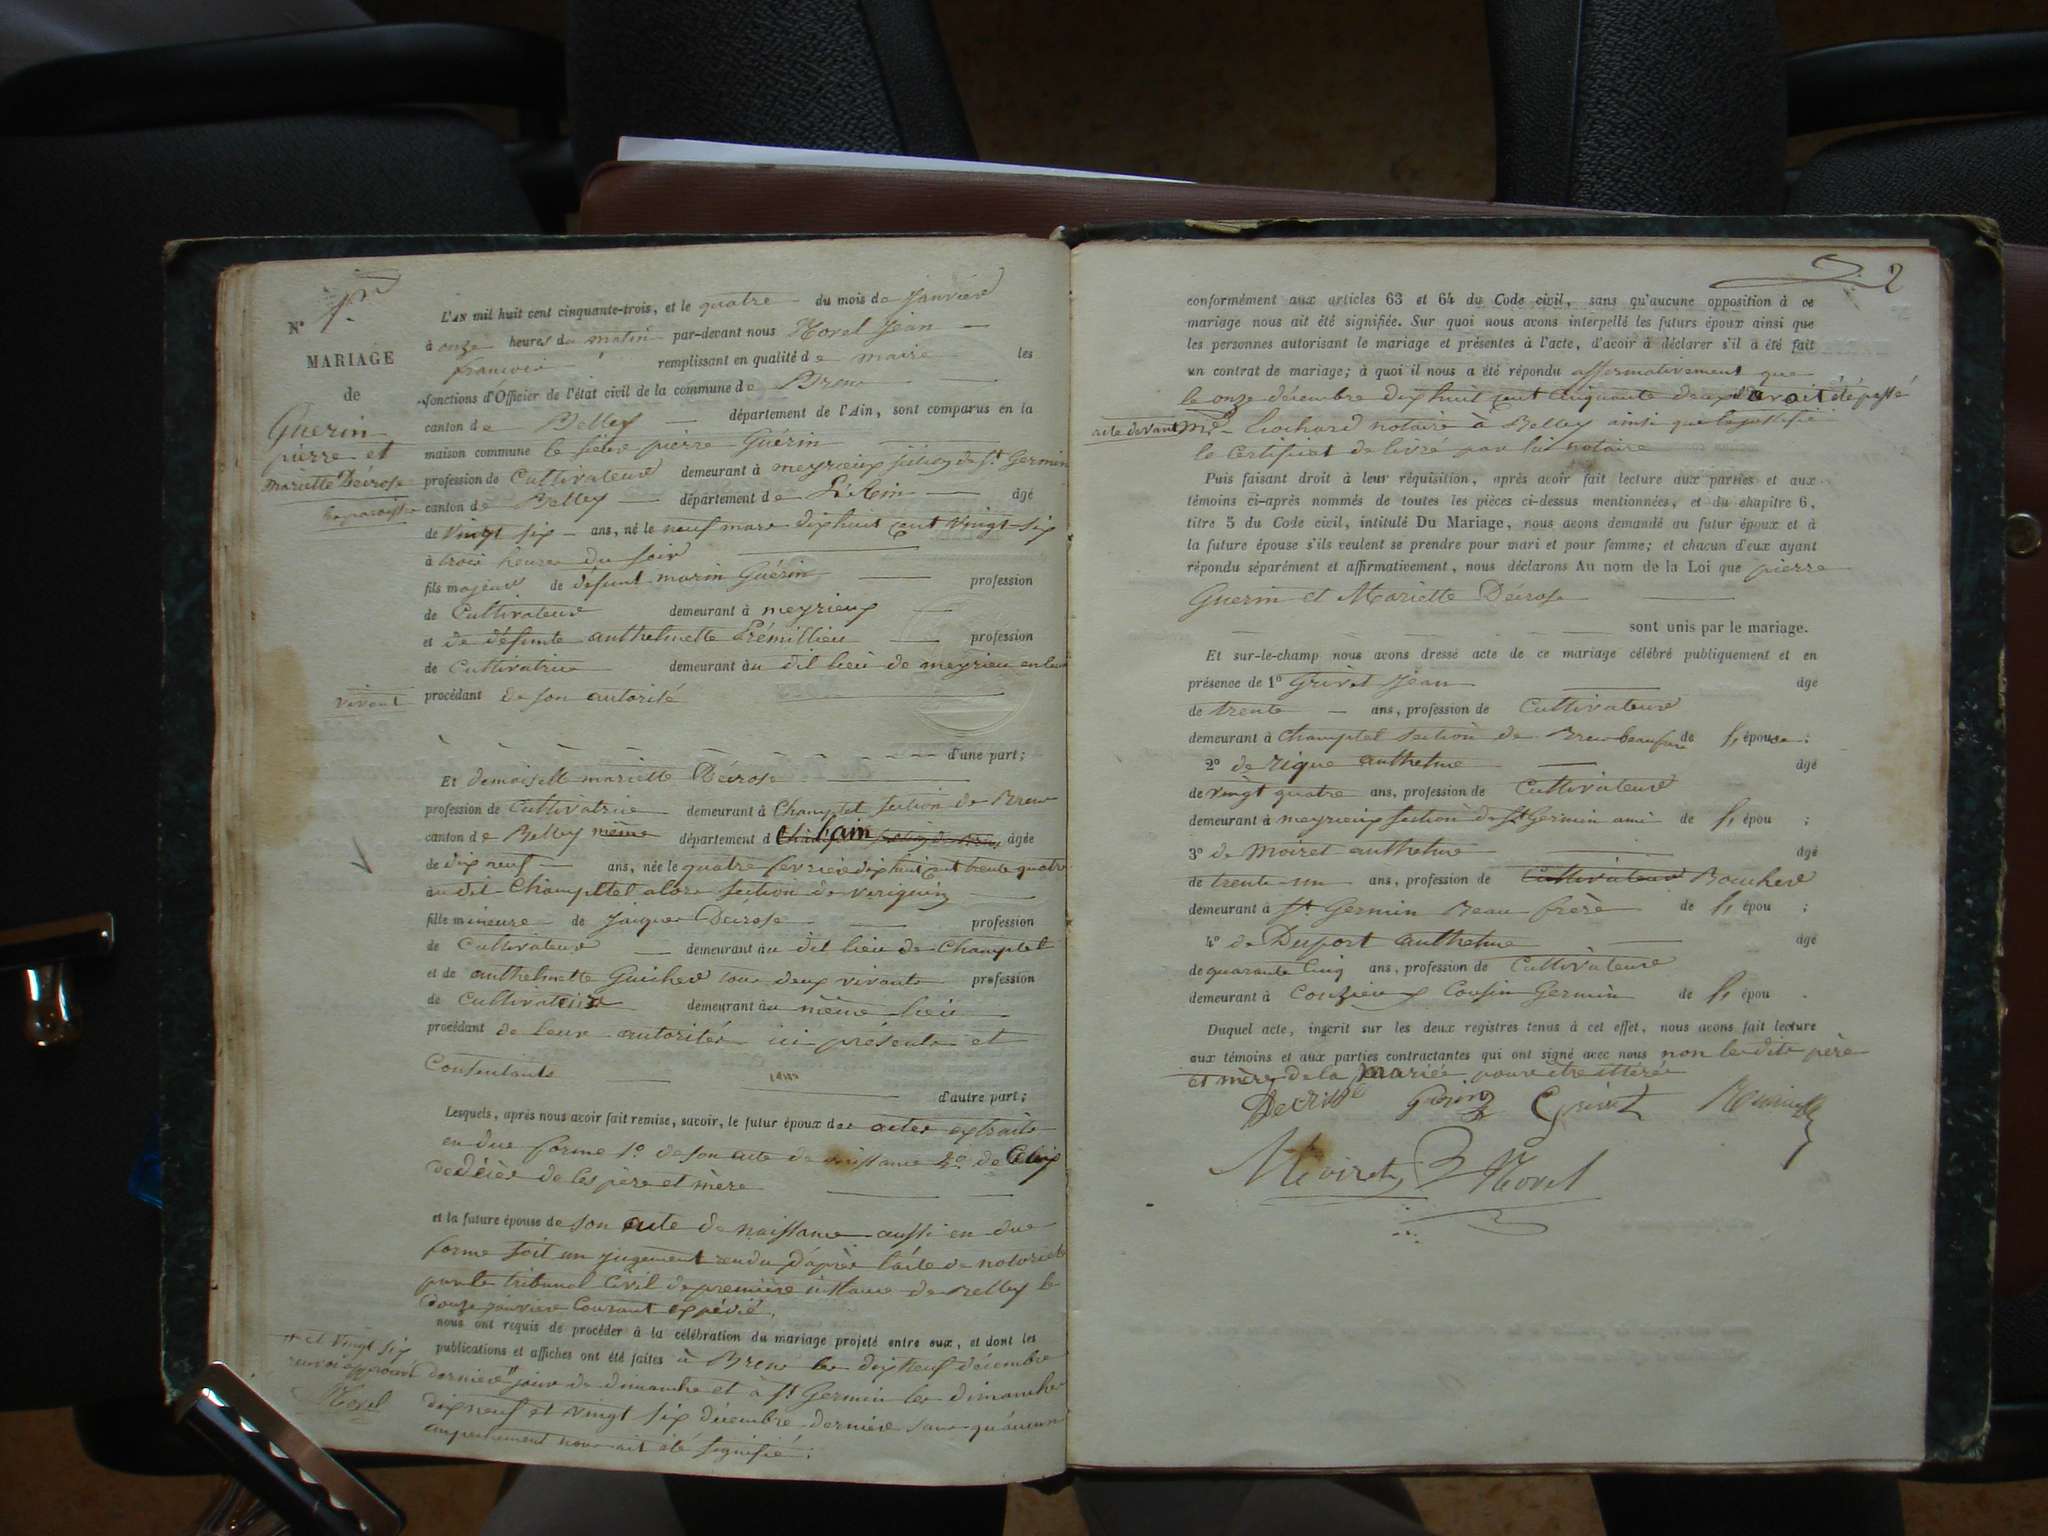 N° 1er
MARIAGE
de
Guerin
pierre et
Mariette Décrose
L'AN mil huit cent cinquante-trois, et le quatre du mois de Janvier
à onze heures du matin par-devant nous Morel Jean
françois remplissant en qualité de maire les
fonctions d'Officier de l'état civil de la commune de Brens
canton de Belley département de l'Ain, sont comparus en la
maison commune le sieur pierre Guérin
profession de Cultivateur demeurant à meyrieux section de St Germin
canton de Belley département de L'Ain âgé
de Vingt six ans, né le neuf mars dix huit cent vingt six
à trois heures du soir
fils majeur de défunt marin Guérin profession
de Cultivateur demeurant à meyrieux
et de défunte anthelmette Prémillieu profession
de Cultivatrice demeurant au dit lieu de meyrieu en leur
vivant procédant de son autorité
d'une part;
Et demoiselle mariette Décrose
profession de Cultivatrice demeurant à Champtel section de Brens
canton de Belley même département de l'ain âgée
de dix neuf ans, née le quatre fevrier dix huit cent trente quatre
au dit Champtel alors section de Virignin
fille mineure de Jaques Décrose profession
de Cultivateur demeurant au dit lieu de Champtel
et de anthelmette Guicher tous deux vivants profession
de Cultivatrice demeurant au même lieu
procédant de leurs autorités ici présents et
Consentants
d'autre part;
Lesquels, après nous avoir fait remise, savoir, le futur époux des actes extraits
en due forme 1° de son acte de naissance 2° de Ceux
de décès de ses père et mère
et la future épouse de son acte de naissance aussi en due
forme soit un jugement rendu d'après l'acte de notoriété
par le tribunal Civil de première instance de Belley le
douze janvier Courant expédié,
nous ont requis de procéder à la célébration du mariage projeté entre eux, et dont les
publications et affiches ont été faites à Brens les dix neuf décembre
" et vingt six
renvoi approuvé
Morel
dernier " jour de dimanche et à St Germin les dimanches
dix neuf et vingt six décembre dernier sans qu'aucun
empechement nous ait été signifié.
2
conformément aux articles 63 et 64 du Code civil, sans qu'aucune opposition à ce
mariage nous ait été signifiée. Sur quoi nous avons interpellé les futurs époux ainsi que
les personnes autorisant le mariage et présentes à l'acte, d'avoir à déclarer s'il a été fait
un contrat de mariage; à quoi il nous a été répondu affirmativement que
le onze décembre dix huit cent cinquante deux il avait été passé
acte devant Me Lochard notaire à Belley ainsi que le justifie
le Certificat délivré par lui notaire
Puis faisant droit à leur réquisition, après avoir fait lecture aux parties et aux
témoins ci-après nommés de toutes les pièces ci-dessus mentionnées, et du chapitre 6,
titre 5 du Code civil, intitulé Du Mariage, nous avons demandé au futur époux et à
la future épouse s'ils veulent se prendre pour mari et pour femme; et chacun d'eux ayant
répondu séparément et affirmativement, nous déclarons Au nom de la Loi que pierre
Guerin et Mariette Décrose
sont unis par le mariage.
Et sur-le-champ nous avons dressé acte de ce mariage célébré publiquement et en
présence de 1° Grivet Jean âgé
de trente ans, profession de Cultivateur
demeurant à Champtel section de Brens beaufrere de l'épouse;
2° de rique anthelme âgé
de vingt quatre ans, profession de Cultivateur
demeurant à meyrieux section de St Germin ami de l'épou ;
3° de Moiret anthelme âgé
de trente un ans, profession de Cultivateur Boucher
demeurant à St Germin Beau frère de l'épou ;
4° de Duport anthelme âgé
de quarante cinq ans, profession de Cultivateur
demeurant à Conzieux Cousin Germin de l'épou .
Duquel acte, inscrit sur les deux registres tenus à cet effet, nous avons fait lecture
aux témoins et aux parties contractantes qui ont signé avec nous non les dits père
et mère de la mariée pour être illitérés
Decrose Guérin Grivet
Moiret Morel